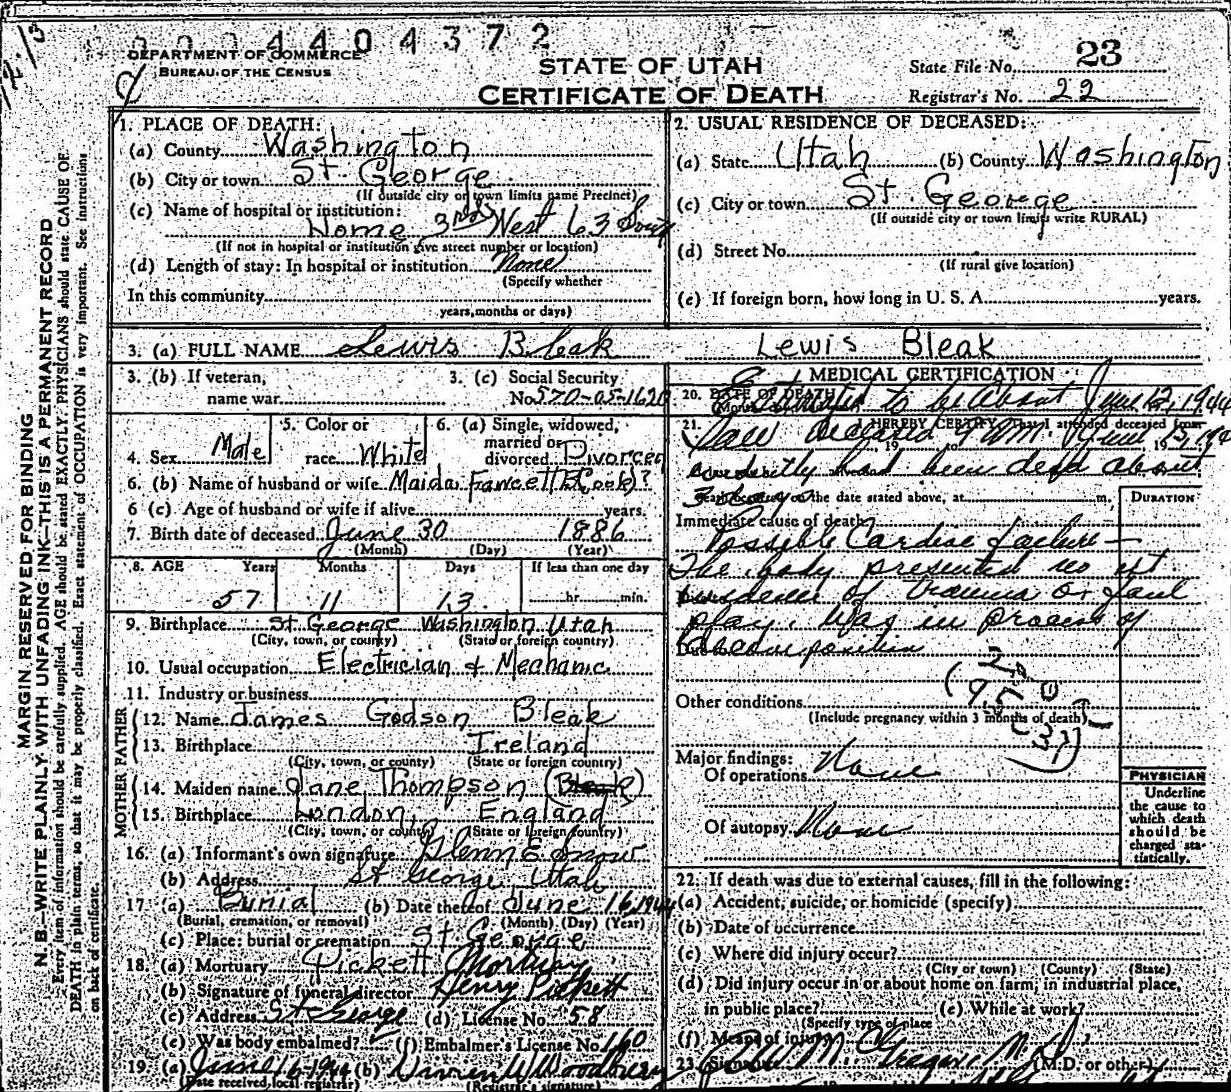 0004404372
DEPARTMENT OF COMMERCE
BUREAU OF THE CENSUS
STATE OF UTAH
CERTIFICATE OF DEATH
State File No. 23
Registrar's No. 22
MARGIN RESERVED FOR BINDING
N. B.—WRITE PLAINLY WITH UNFADING INK—THIS IS A PERMANENT RECORD
Every item of information should be carefully supplied. AGE should be stated EXACTLY. PHYSICIANS should state CAUSE OF
DEATH in plain terms, so that it may be properly classified. Exact statement of OCCUPATION is very important. See instructions
on back of certificate.
1. PLACE OF DEATH:
(a) County Washington
(b) City or town St. George
(If outside city or town limits name Precinct)
(c) Name of hospital or institution:
Home 3rd West 63 Sou
(If not in hospital or institution give street number or location)
(d) Length of stay: In hospital or institution None
(Specify whether
In this community
years, months or days)
2. USUAL RESIDENCE OF DECEASED:
(a) State Utah (b) County Washington
(c) City or town St. George
(If outside city or town limits write RURAL)
(d) Street No.
(If rural give location)
(e) If foreign born, how long in U. S. A. years.
3. (a) FULL NAME Lewis Bleak Lewis Bleak
3. (b) If veteran,
name war
3. (c) Social Security
No. 570-05-1620
4. Sex Male
5. Color or
race White
6. (a) Single, widowed,
married or
divorced Divorced
6. (b) Name of husband or wife Maida Fawcett
6 (c) Age of husband or wife if alive years.
7. Birth date of deceased June 30 1886
(Month) (Day) (Year)
8. AGE Years Months Days If less than one day
57 11 13 hr. min.
9. Birthplace St. George Washington Utah
(City, town, or county) (State or foreign country)
10. Usual occupation Electrician & Mechanic
11. Industry or business
FATHER
12. Name James Godson Bleak
13. Birthplace Ireland
(City, town, or county) (State or foreign country)
MOTHER
14. Maiden name Jane Thompson (Bleak)
15. Birthplace London, England
(City, town, or county) (State or foreign country)
16. (a) Informant's own signature Glenn E. Snow
(b) Address St George Utah
17. (a) Burial (b) Date thereof June 16, 1944
(Burial, cremation, or removal) (Month) (Day) (Year)
(c) Place: burial or cremation St George
18. (a) Mortuary Pickett Mortuary
(b) Signature of funeral director Henry Pickett
(c) Address St George (d) License No. 58
(e) Was body embalmed? (f) Embalmer's License No. 160
19. (a) June 16-1944 (b)
Date received local registrar) (Registrar's signature)
MEDICAL CERTIFICATION
20. DATE OF DEATH Estimated to be about June 12, 1944
21. I HEREBY CERTIFY, That I attended deceased from
Saw deceased 9 A.M. June 15, 194
evidently had been dead about
3 days on the date stated above, at m.
DURATION
Immediate cause of death
Possible Cardiac failure —
The body presented no
evidence of trauma or foul
play. Was in process of
decomposition
Other conditions
(Include pregnancy within 3 months of death)
Major findings:
Of operations None
Of autopsy None
PHYSICIAN
Underline
the cause to
which death
should be
charged sta-
tistically.
22. If death was due to external causes, fill in the following:
(a) Accident, suicide, or homicide (specify)
(b) Date of occurrence
(c) Where did injury occur?
(City or town) (County) (State)
(d) Did injury occur in or about home on farm, in industrial place,
in public place? (e) While at work?
(Specify type of place
(f) Means of injury
23. (M.D. or other)